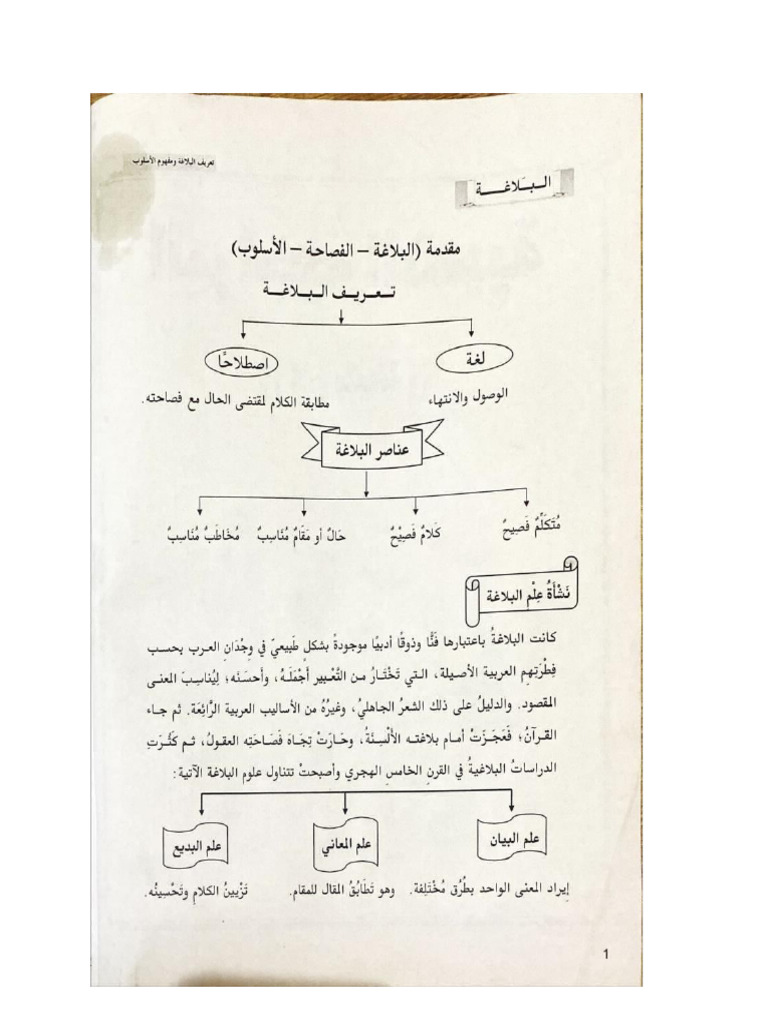 تعريف البلاغة ومفهوم الأسلوب
الـبـَلاغـــــة
مقدمة (البلاغة – الفصاحة – الأسلوب)
تـعـريـف الـبـلاغـة
لغة
اصطلاحًا
الوصول والانتهاء
مطابقة الكلام لمقتضى الحال مع فصاحته.
عناصر البلاغة
مُتَكَلِّمٌ فَصِيحٌ
كَلَامٌ فَصِيْحٌ
حَالٌ أو مَقَامٌ مُنَاسِبٌ
مُخَاطَبٌ مُنَاسِبٌ
نَشْأَةُ عِلْم البلاغة
كانت البلاغةُ باعتبارها فَنًّا وذوقًا أدبيًا موجودةً بشكلٍ طَبِيعيّ في وِجْدَانِ العرب بحسب
فِطْرَتِهم العربية الأصيلة، التي تَخْتَارُ من التَّعْبير أَجْمَلَهُ، وأحسَنَه؛ لِيُناسِبَ المعنى
المقصود. والدليلُ على ذلك الشعرُ الجاهليُ، وغيرُهُ من الأساليب العربية الرَّائِعَة. ثم جاء
القرآنُ؛ فَعَجَزَتْ أمام بلاغته الأَلْسِنَةُ، وحَارَتْ تِجَاهَ فَصَاحَتِه العقولُ، ثم كَثُرَتِ
الدراساتُ البلاغيةُ في القرنِ الخامسِ الهجري وأصبحتْ تتناول علوم البلاغة الآتية:
علم البيان
علم المعاني
علم البديع
إيراد المعنى الواحد بطُرُق مُخْتَلِفة.
وهو تَطَابُقُ المقال للمقام.
تَزْيينُ الكلامِ وتَحْسِينُه.
1